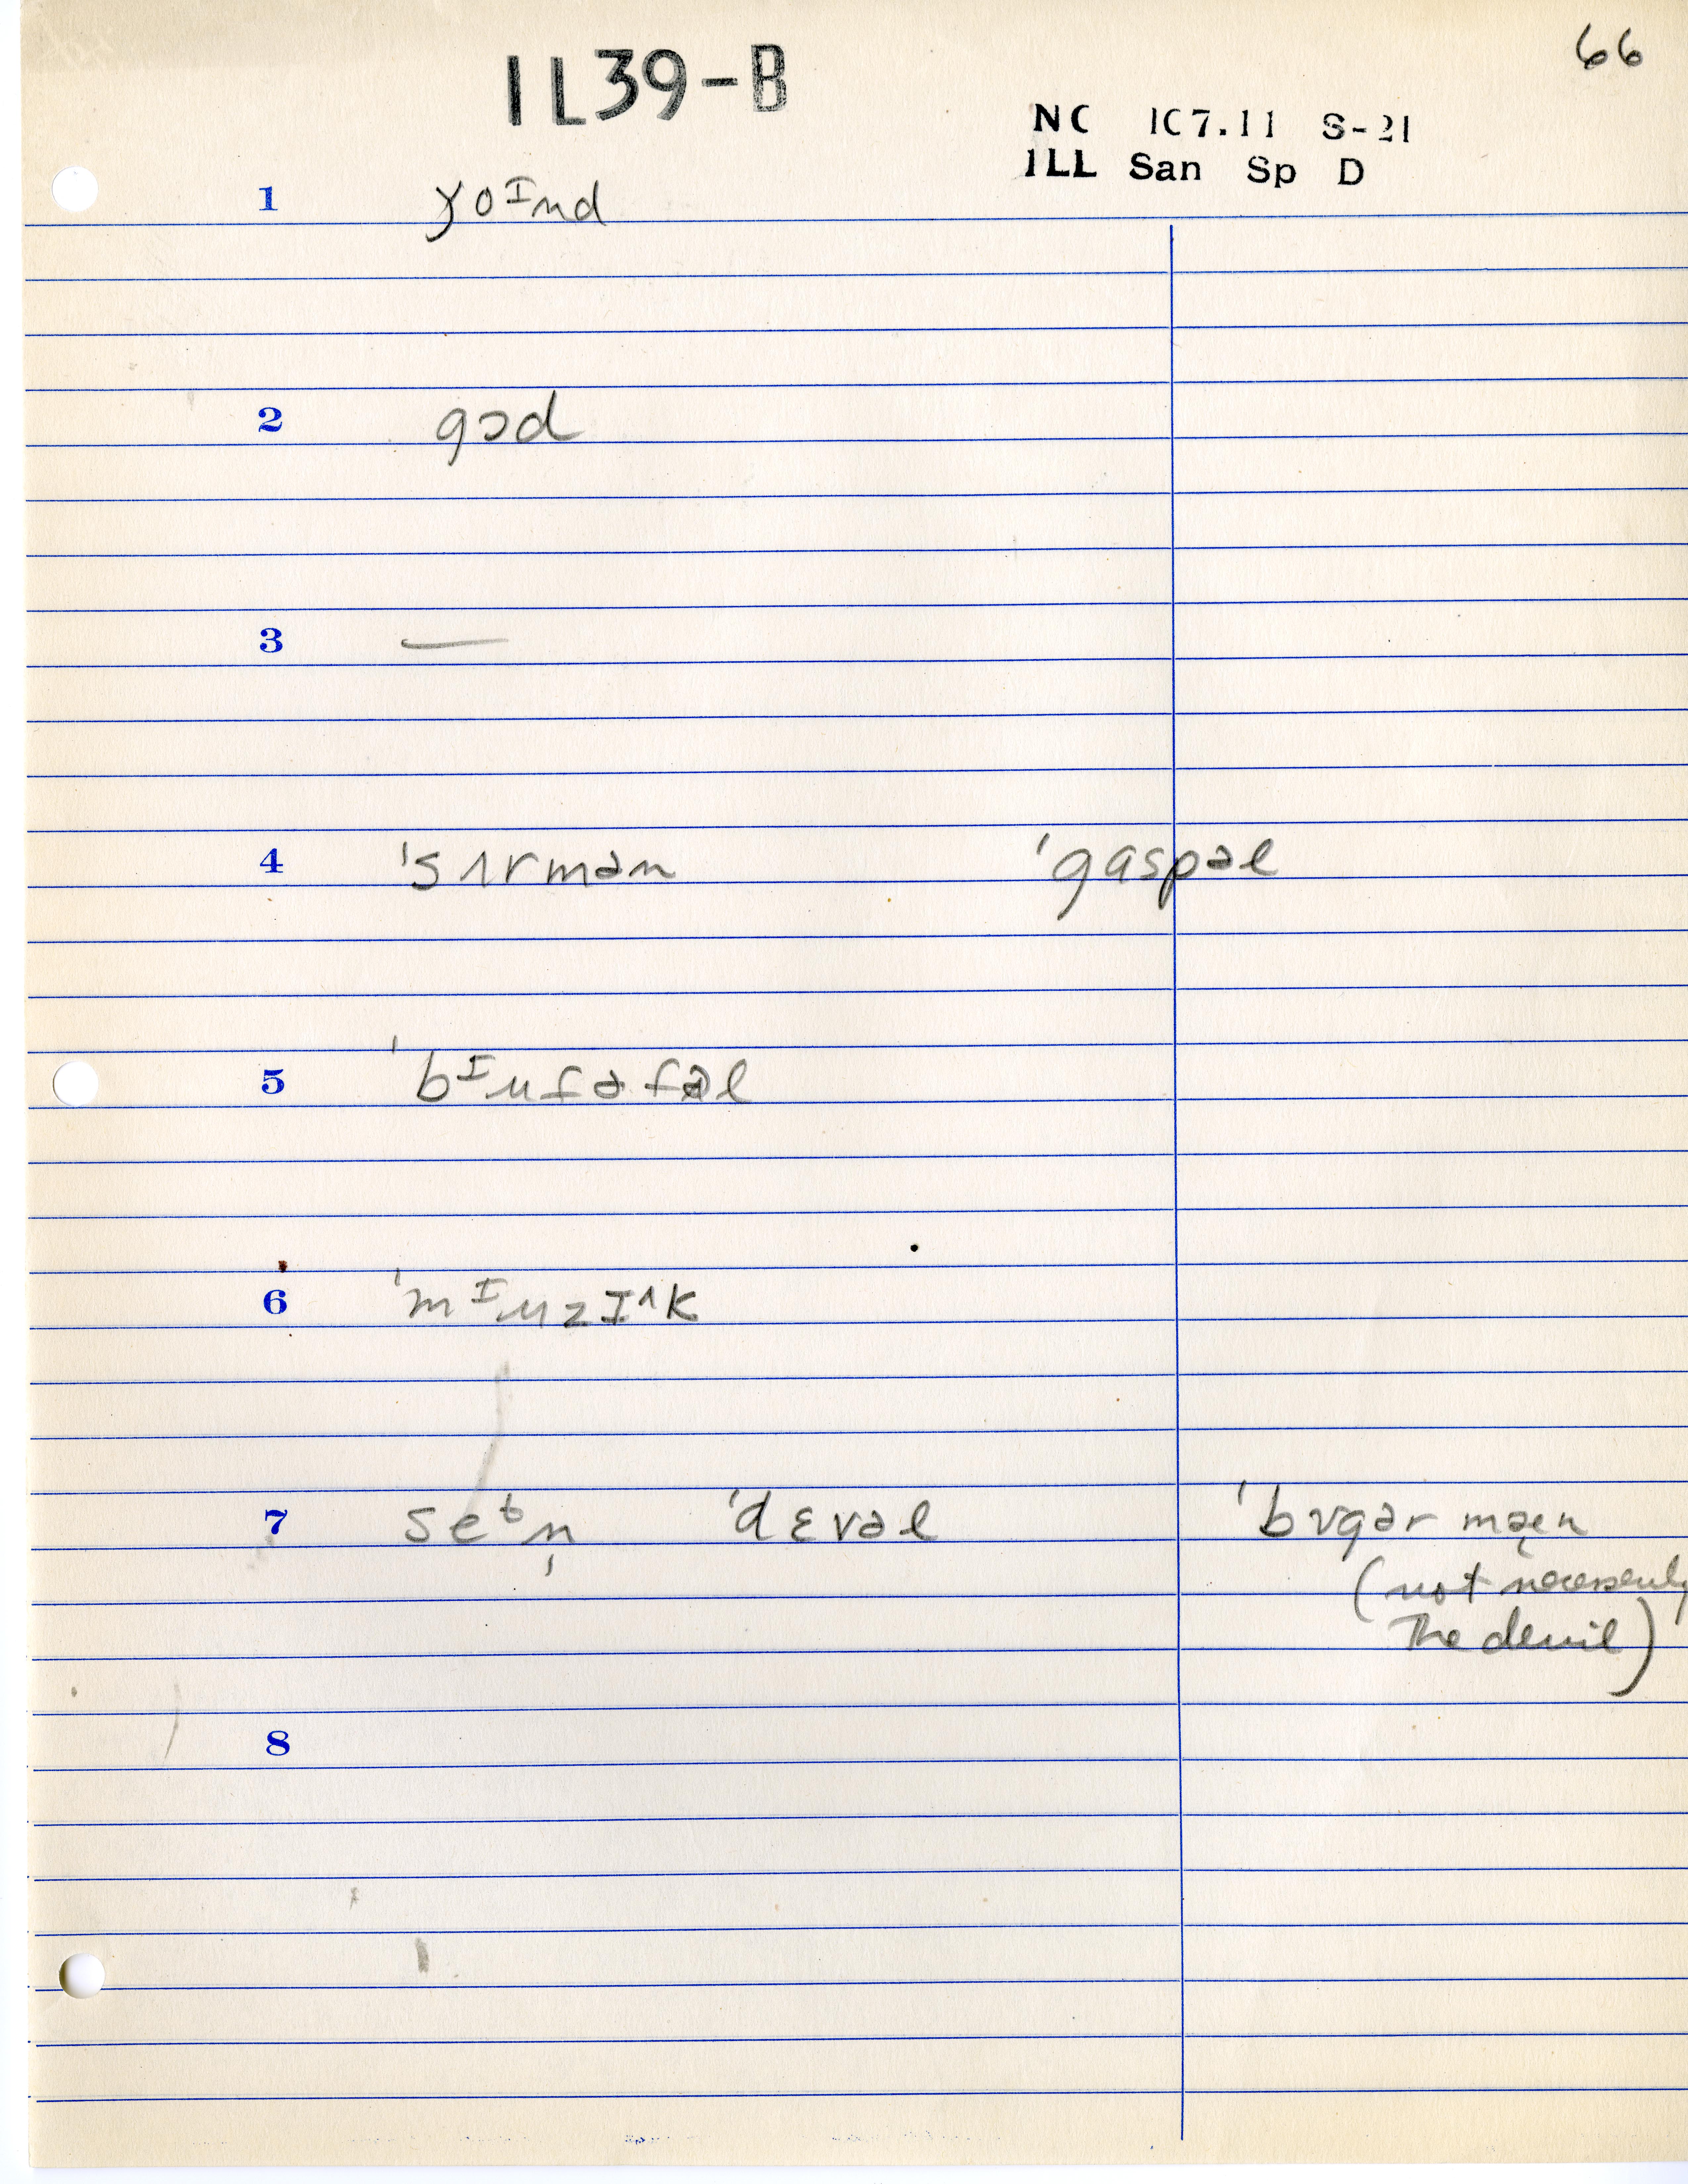 66
IL39-B
NC IC7.11 S-21
ILL San Sp D
1 ɣoᴵnd
2 gɔd
3 —
4 'sʌrmən 'gaspəl
5 'bᴵufəfəl
6 'mᴵuzɪ^k
7 seᵗn̩ 'dɛvəl 'bʊgər mæ̨n
(not necessarily
the devil)
8